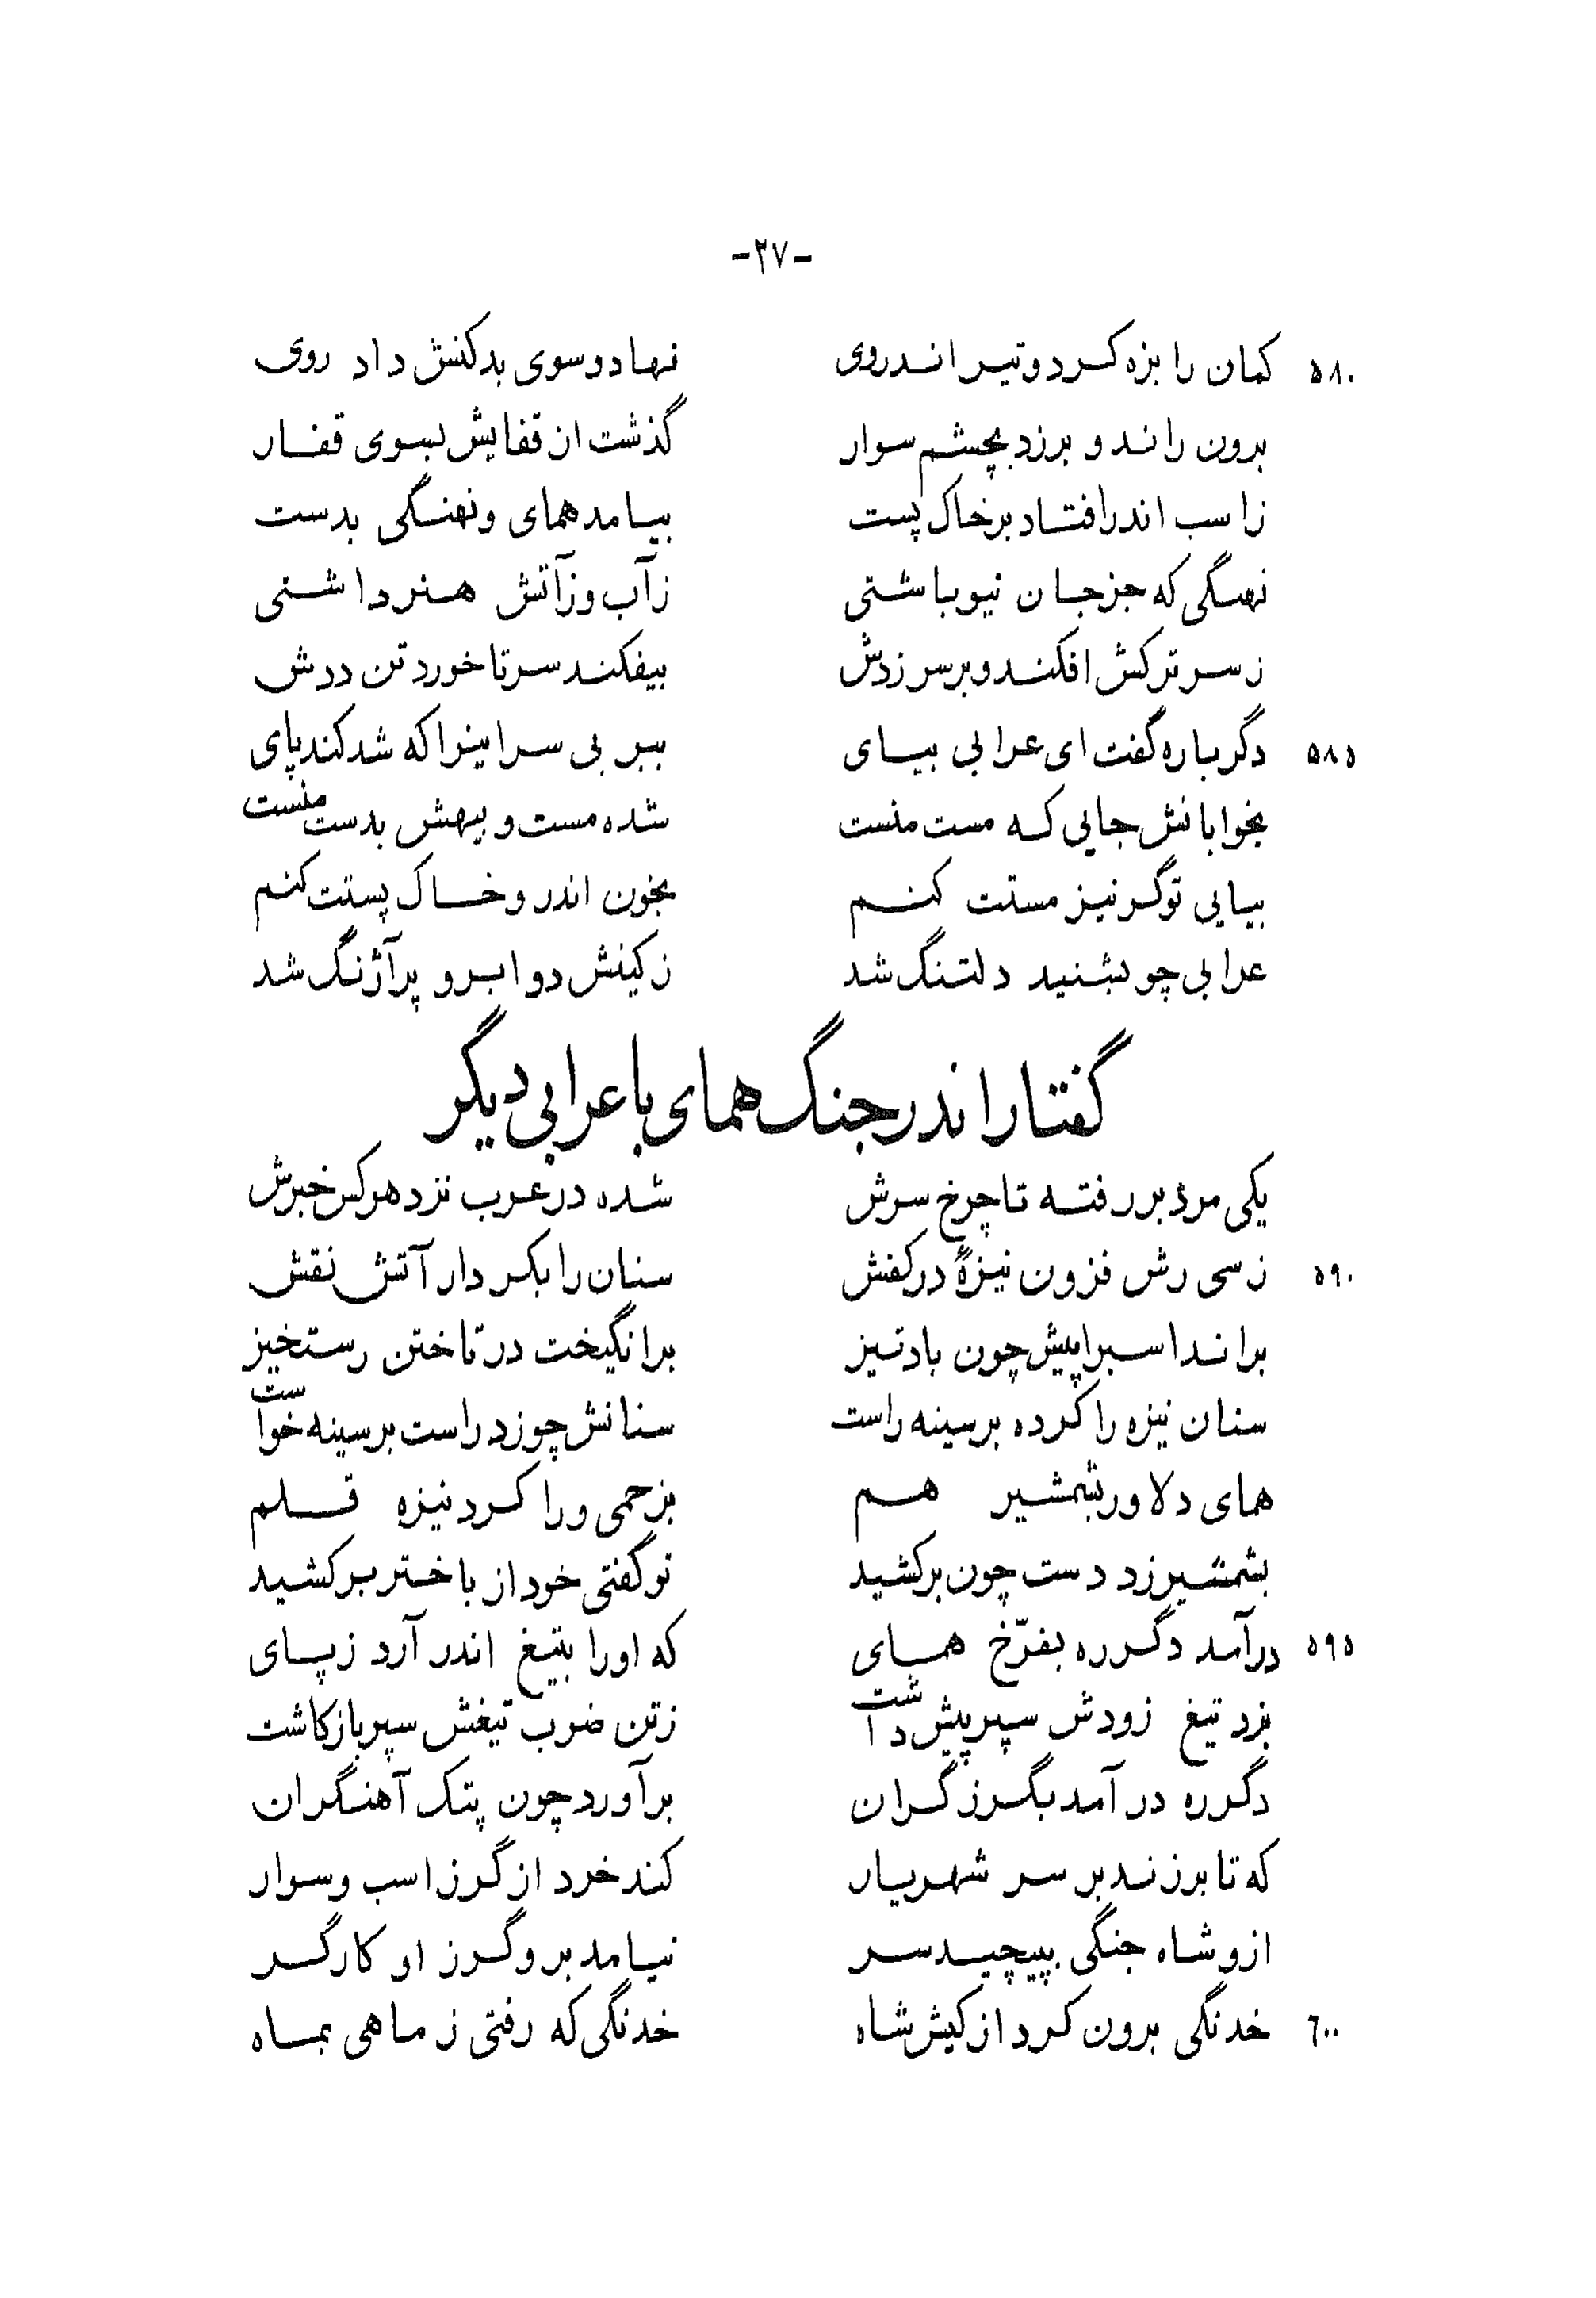 -۲۷-
۵۸۰ کمان را بزه کرد و تیر اندروی نهاد و سوی بدکنش داد روی
برون راند و برزد بچشم سوار گذشت از قفایش بسوی قفار
ز اسب اندر افتاد بر خاک پست بیامد همای و نهنگی بدست
نهنگی که جز جان نیوباشتی ز آب و ز آتش هنر داشتی
ز سر ترکش افکند و بر سر زدش بیفکند سر تا خورد تن ددش
۵۸۵ دگرباره گفت ای عرابی بیای ببر بی سر اینرا که شد کند پای
بخوابانش جایی که مست منست شده مست و بیهش بدست منست
بیایی تو گر نیز مستت کنم بخون اندر و خاک پستت کنم
عرابی چو بشنید دلتنگ شد ز کینش دو ابرو پر آژنگ شد
گفتار اندر جنگ همای با عرابی دیگر
یکی مرد بر رفته تا چرخ سرش شده در عرب نزد هر کس خبرش
۵۹۰ ز سی رش فزون نیزهٔ در کفش سنان را بکردار آتش نقش
براند اسبرا پیش چون باد تیز برانگیخت در تاختن رستخیز
سنان نیزه را کرده بر سینه راست سنانش چو زد راست بر سینه خواست
همای دلاور بشمشیر هم بزخمی ورا کرد نیزه قلم
بشمشیر زد دست چون برکشید تو گفتی خود از باختر برکشید
۵۹۵ درآمد دگرره بفرّخ همای که اورا بتیغ اندر آرد ز پای
بزد تیغ زودش سپر پیش داشت ز تن ضرب تیغش سپر بازکاشت
دگرره در آمد بگرز گران برآورد چون پتک آهنگران
که تا برزند بر سر شهریار کند خرد از گرز اسب و سوار
ازو شاه جنگی بپیچید سر نیامد برو گرز او کارگر
۶۰۰ خدنگی برون کرد از کیش شاه خدنگی که رفتی ز ماهی بماه